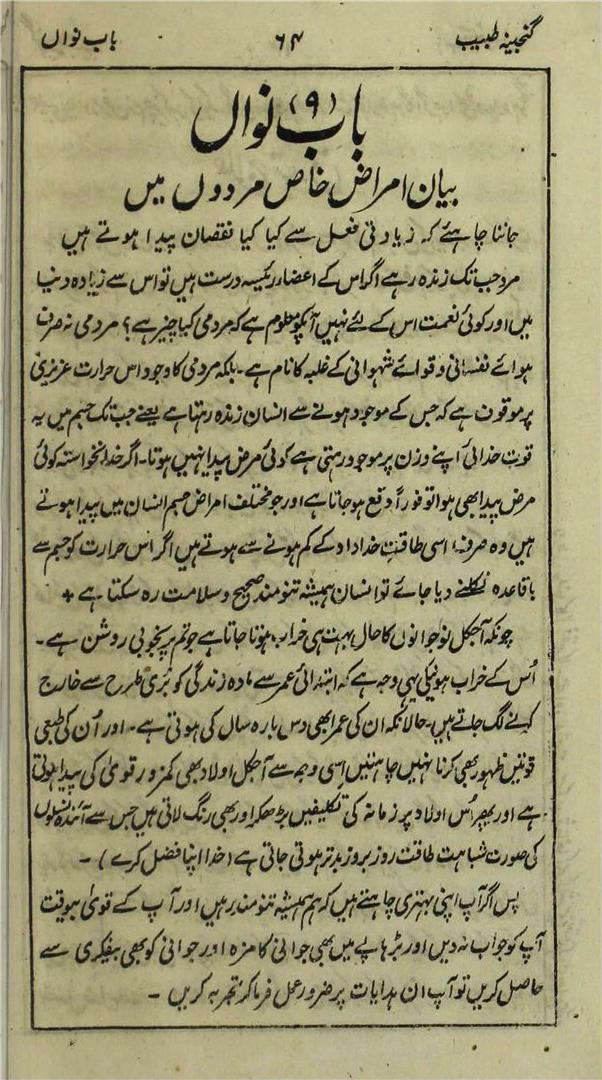 گنجینۂ طبیب ۶۴ باب نواں
باب (۹) نواں
بیان امراض خاص مردوں میں
جاننا چاہئے کہ زیادتی فعل سے کیا کیا نقصان پیدا ہوتے ہیں
مرد جب تک زندہ رہے اگر اس کے اعضاء رئیسہ درست ہیں تو اس سے زیادہ دنیا
میں اور کوئی نعمت اس کے لئے نہیں آپکو معلوم ہے کہ مردمی کیا چیز ہے؟ مردمی نہ صرف
ہوائے نفسانی و قوائے شہوانی کے غلبہ کا نام ہے۔ بلکہ مردمی کا وجود اس حرارت عزیزی
پر موقوف ہے کہ جس کے موجود ہونے سے انسان زندہ رہتا ہے یعنے جب تک جسم میں یہ
قوت خدائی اپنے وزن پر موجود رہتی ہے کوئی مرض پیدا نہیں ہوتا۔ اگر خدانخواستہ کوئی
مرض پیدا بھی ہوا تو فوراً دفع ہو جاتا ہے اور جو مختلف امراض جسم انسان میں پیدا ہوتے
ہیں وہ صرف اسی طاقت خداداد کے کم ہونے سے ہوتے ہیں اگر اس حرارت کو جسم سے
باقاعدہ نکلنے دیا جائے تو انسان ہمیشہ تنومند صحیح و سلامت رہ سکتا ہے +
چونکہ آجکل نوجوانوں کا حال بہت ہی خراب ہوتا جاتا ہے جو تم پر بخوبی روشن ہے۔
اُس کے خراب ہونیکی یہی وجہ ہے کہ ابتدائی عمر سے مادہ زندگی کو بُری طرح سے خارج
کرنے لگ جاتے ہیں۔ حالانکہ ان کی عمر ابھی دس بارہ سال کی ہوتی ہے۔ اور اُن کی طبعی
قوتیں ظہور بھی کرنا نہیں چاہتیں اسی وجہ سے آجکل اولاد بھی کمزور قویٰ کی پیدا ہوتی
ہے اور پھر اُس اولاد پر زمانہ کی تکلیفیں بڑھکر اور بھی رنگ لاتی ہیں جس سے آئندہ نسلوں
کی صورت شباہت طاقت روز بروز بدتر ہوتی جاتی ہے (خدا اپنا فضل کرے)۔
پس اگر آپ اپنی بہتری چاہتے ہیں کہ ہم ہمیشہ تنومند رہیں اور آپ کے قویٰ بیوقت
آپ کو جواب نہ دیں اور بڑھاپے میں بھی جوانی کا مزہ اور جوانی کو بھی بیفکری سے
حاصل کریں تو آپ ان ہدایات پر ضرور عمل فرما کر تجربہ کریں۔